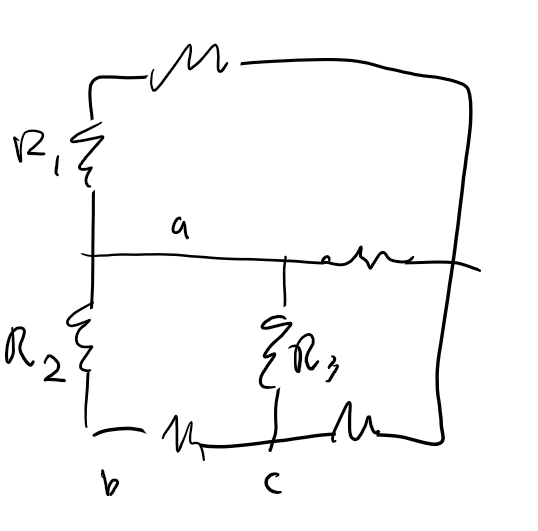 R1
a
R2
R3
b
c